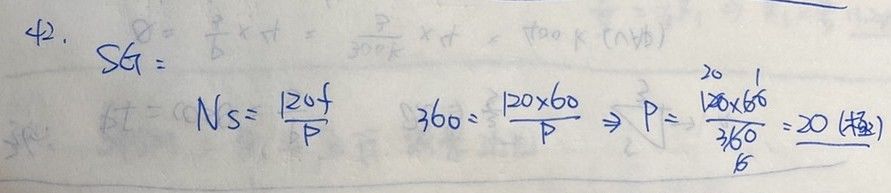 42.
SG =
Ns = 120f/P 360 = 120×60/P ⇒ P = 120×60/360 = 20 (極)
20 1
6